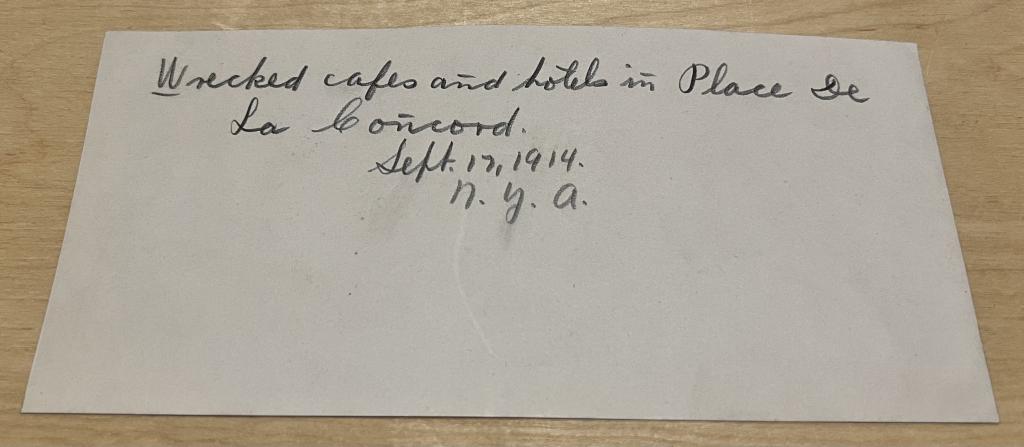 Wrecked cafes and hotels in Place De
La Concord.
Sept. 17, 1914.
N. Y. A.